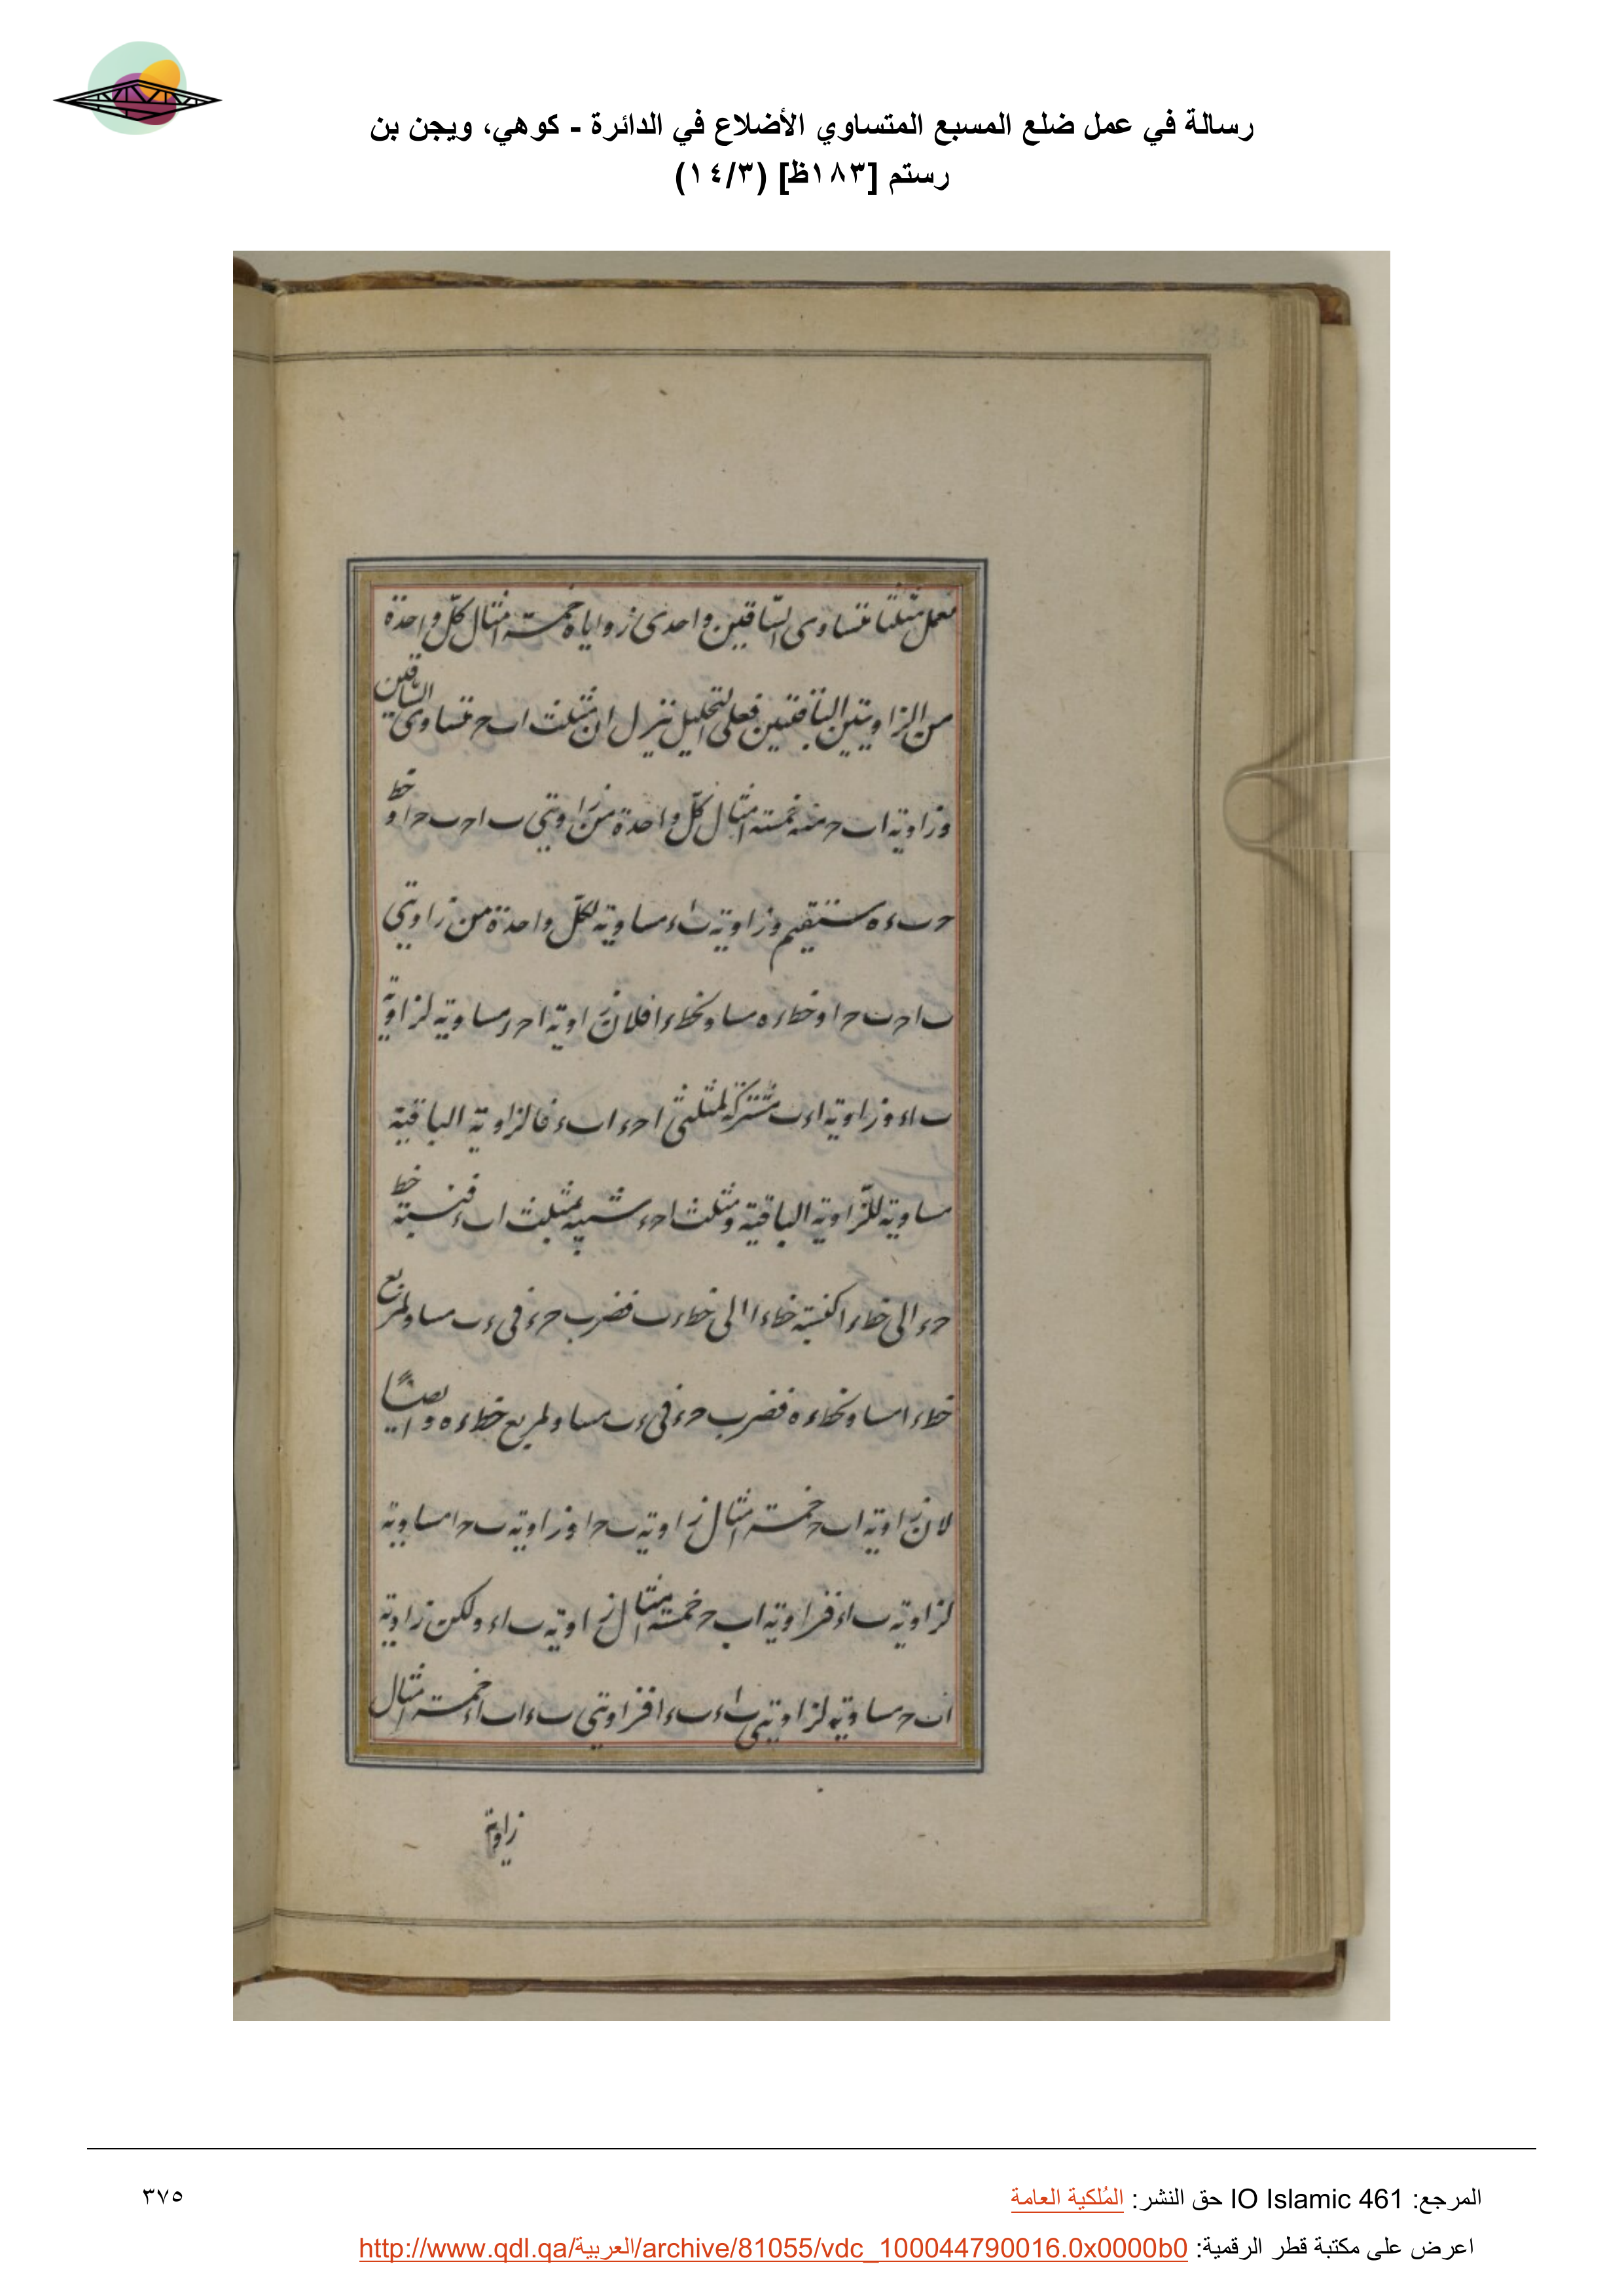 رسالة في عمل ضلع المسبع المتساوي الأضلاع في الدائرة - كوهي، ويجن بن
رستم [١٨٣ظ] (١٤/٣)
نعمل مثلثا متساوى السّاقين واحدى زواياه خمسة امثال كلّ واحدة
من الزاويتين الباقيتين فعلى التحليل ننزل ان مثلث ا ب ح متساوى السّاقين
وزاوية ا ب ح منه خمسة امثال كلّ واحدة من زاويتى ب ا ح ب ح ا و خط
ح ب ء ه مستقيم وزاوية ب ا ء مساوية لكلّ واحدة من زاويتى
ب ا ح ب ح ا و خط ء ه مساو لخط ء ا فلان زاوية ا ح ء مساوية لزاوية
ب ا ء وزاوية ا ء ب مشتركة لمثلثى ا ح ء ا ب ء فالزاوية الباقية
مساوية للزّاوية الباقية ومثلث ا ح ء شبيه بمثلث ا ب ء فنسبة خط
ح ء الى خط ء ا كنسبة خط ء ا الى خط ء ب فضرب ح ء فى ء ب مساو لمربع
خط ء ا مساو لخط ء ه فضرب ح ء فى ء ب مساو لمربع خط ء ه و ايضًا
لان زاوية ا ب ح خمسة امثال زاوية ب ح ا وزاوية ب ح ا مساوية
لزاوية ب ا ء فزاوية ا ب ح خمسة امثال زاوية ب ا ء ولكن زاوية
ا ب ح مساوية لزاويتى ب ا ء ب ء ا فزاويتى ب ء ا ب ا ء خمسة امثال
زاوية
المرجع: IO Islamic 461 حق النشر: المُلكية العامة
٣٧٥
اعرض على مكتبة قطر الرقمية: http://www.qdl.qa/العربية/archive/81055/vdc_100044790016.0x0000b0